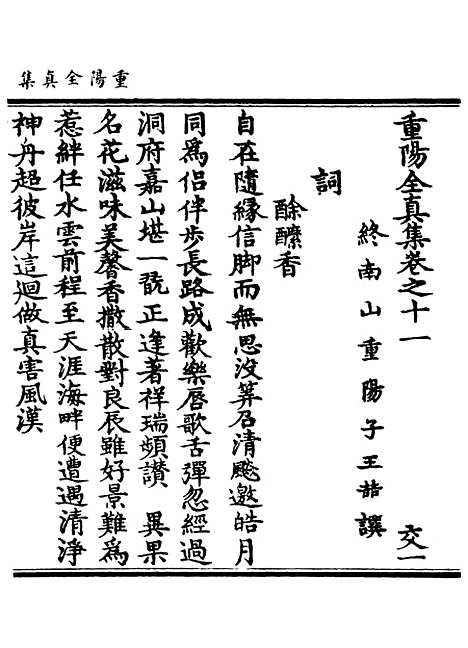 重陽全真集
重陽全真集卷之十一 交一
終南山重陽子王嚞譔
詞
酴醿香
自在隨緣信脚而無思沒筭召清飈邀皓月
同爲侣伴步長路成歡樂唇歌舌彈忽經過
洞府嘉山堪一翫正逢著祥瑞頻讃 異果
名花滋味美馨香撒散對良辰雖好景難爲
惹絆任水雲前程至天涯海畔便遭遇清淨
神舟超彼岸這迴做真害風漢